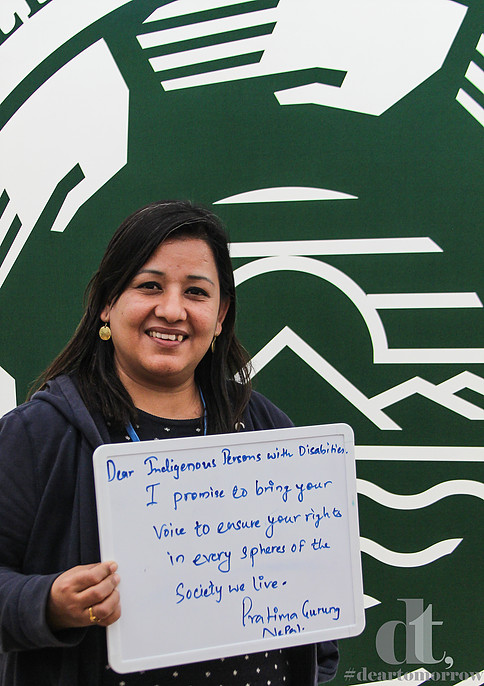 Dear Indigenous Persons with Disabilities.
I promise to bring your
Voice to ensure your rights
in every spheres of the
Society we live.
Pratima Gurung
Nepal.
dt,
#deartomorrow